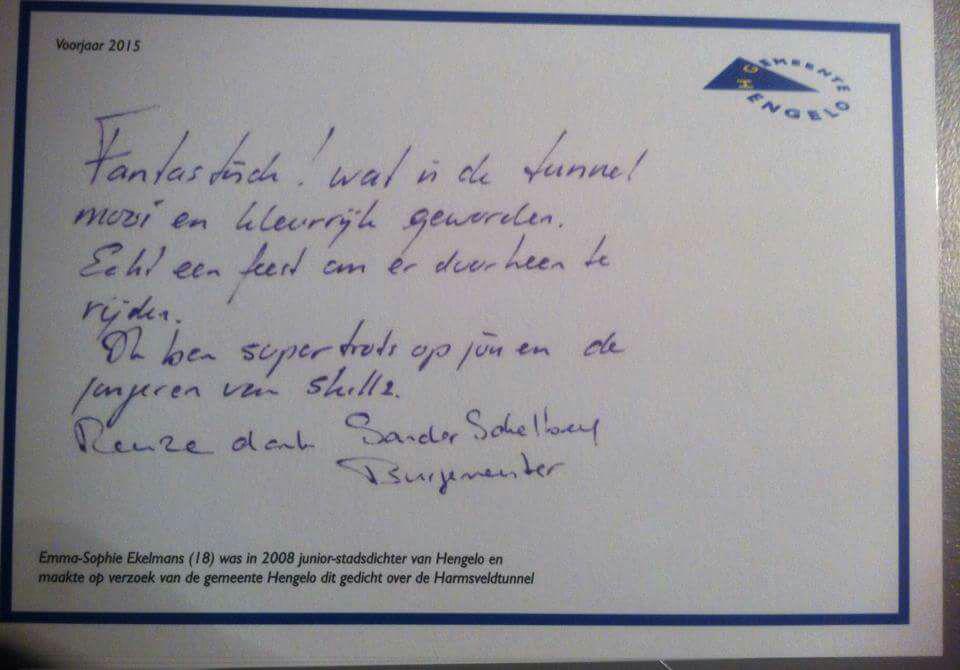 Voorjaar 2015
GEMEENTE
HENGELO
Fantastisch! wat is de tunnel
mooi en kleurrijk geworden.
Echt een feest om er doorheen te
rijden.
Ik ben supertrots op jou en de
jongeren van skillz.
Reuze dank Sander Schelberg
Burgemeester
Emma-Sophie Ekelmans (18) was in 2008 junior-stadsdichter van Hengelo en
maakte op verzoek van de gemeente Hengelo dit gedicht over de Harmsveldtunnel